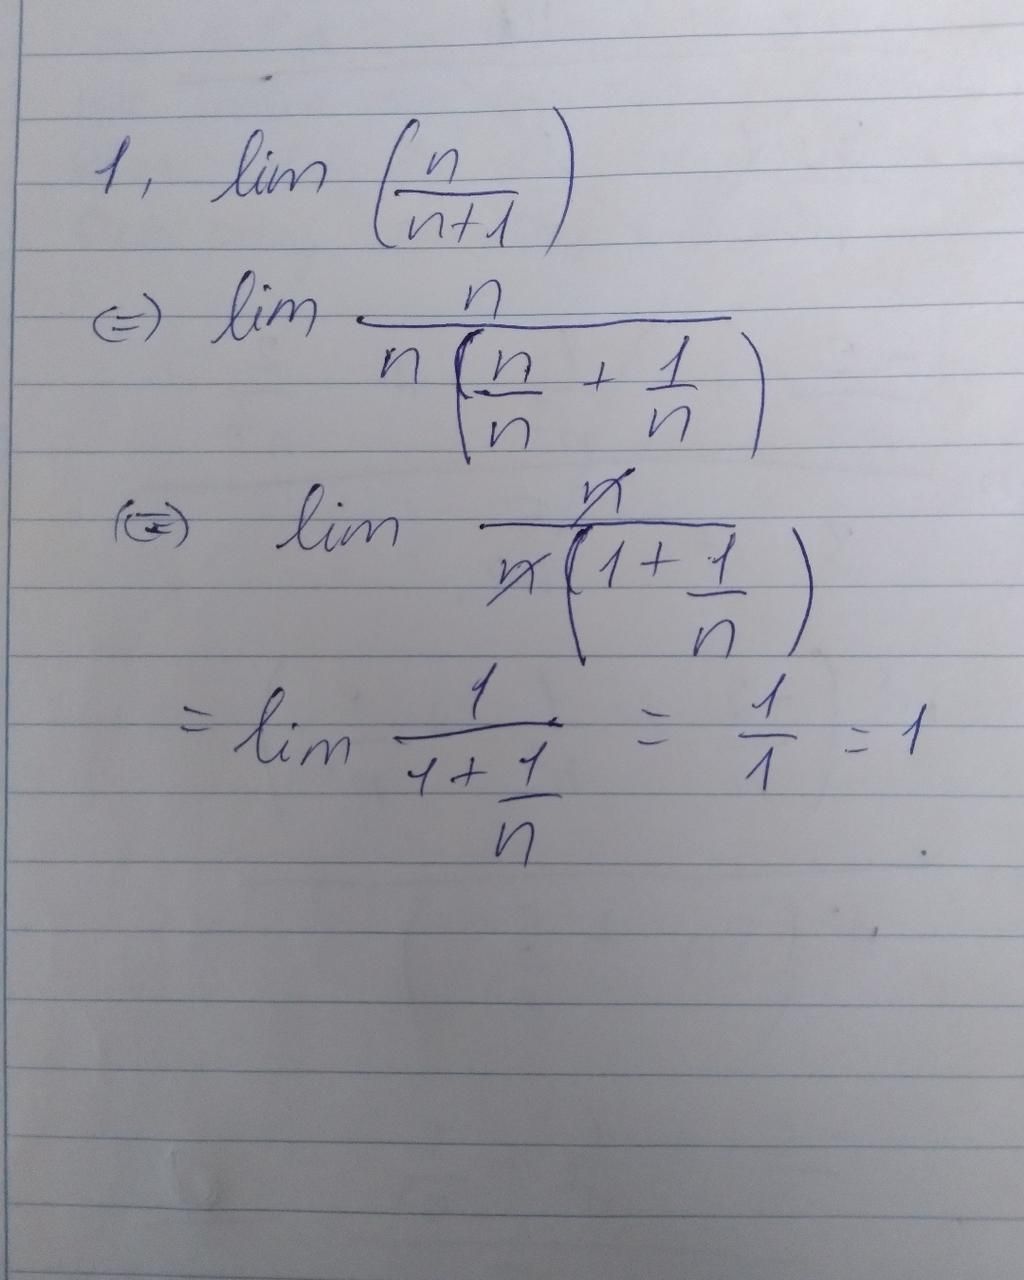 1, lim (n/(n+1))
(=) lim n/(n(n/n + 1/n))
(=) lim n/(n(1 + 1/n))
= lim 1/(1 + 1/n) = 1/1 = 1